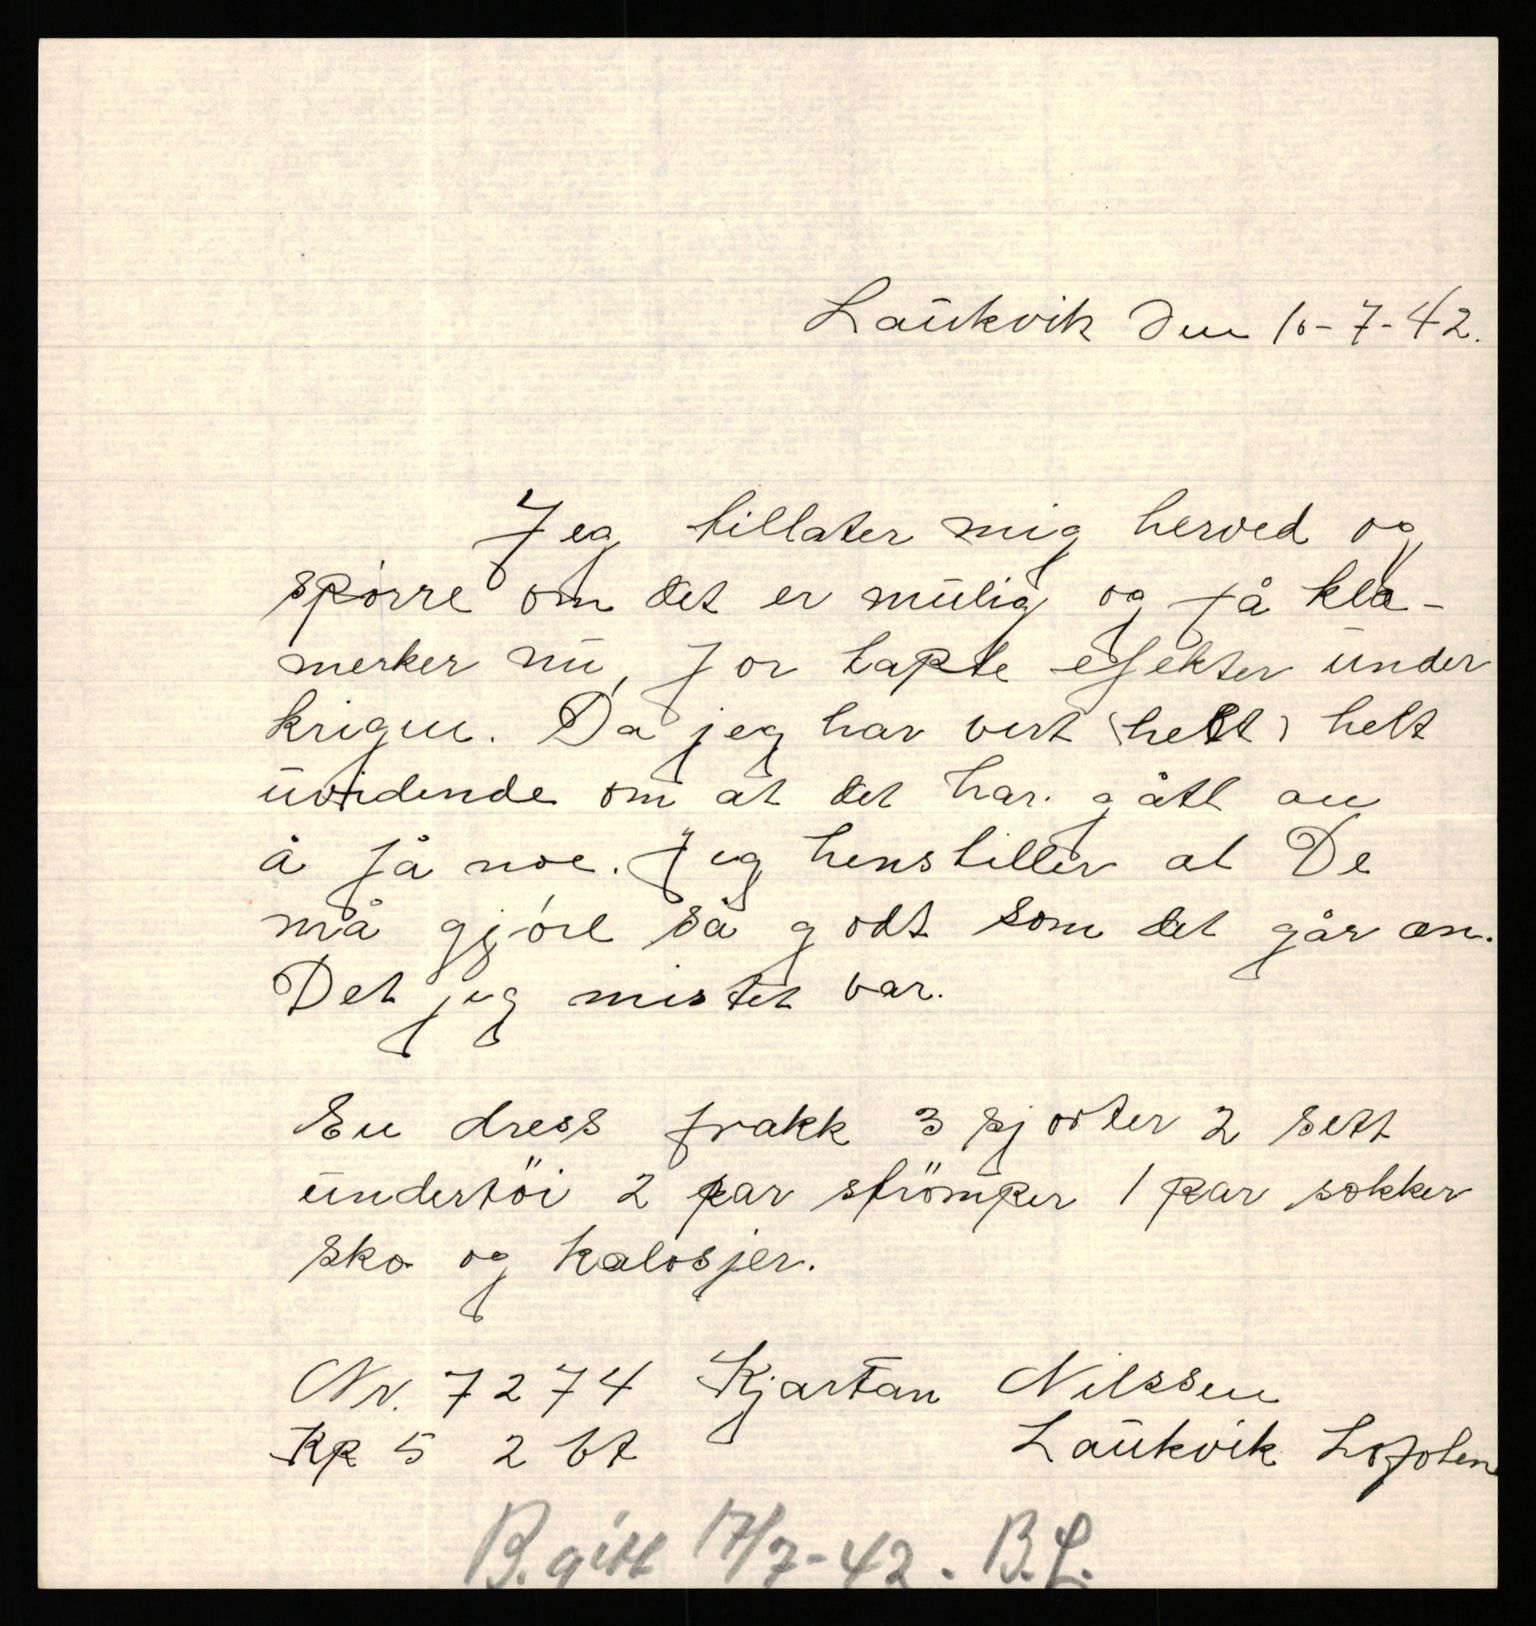 Laukvik den 10-7-42.
Jeg tillater mig herved og
spørre om det er mulig og få klæ-
merker nu, for tapte efekter under
krigen. Da jeg har vert (helt) helt
uvidende om at det har. gått an
å få noe. Jeg henstiller at De
må gjøre så godt som det går an.
Det jeg mistet var.
En dress frakk 3 sjorter 2 sett
undertöi 2 par strömper 1 par sokker
sko og kalosjer.
Nr. 7274 Kjartan Nilssen
Kp 5 2 bt Laukvik Lofoten
B. gitt 17/7-42. B.L.